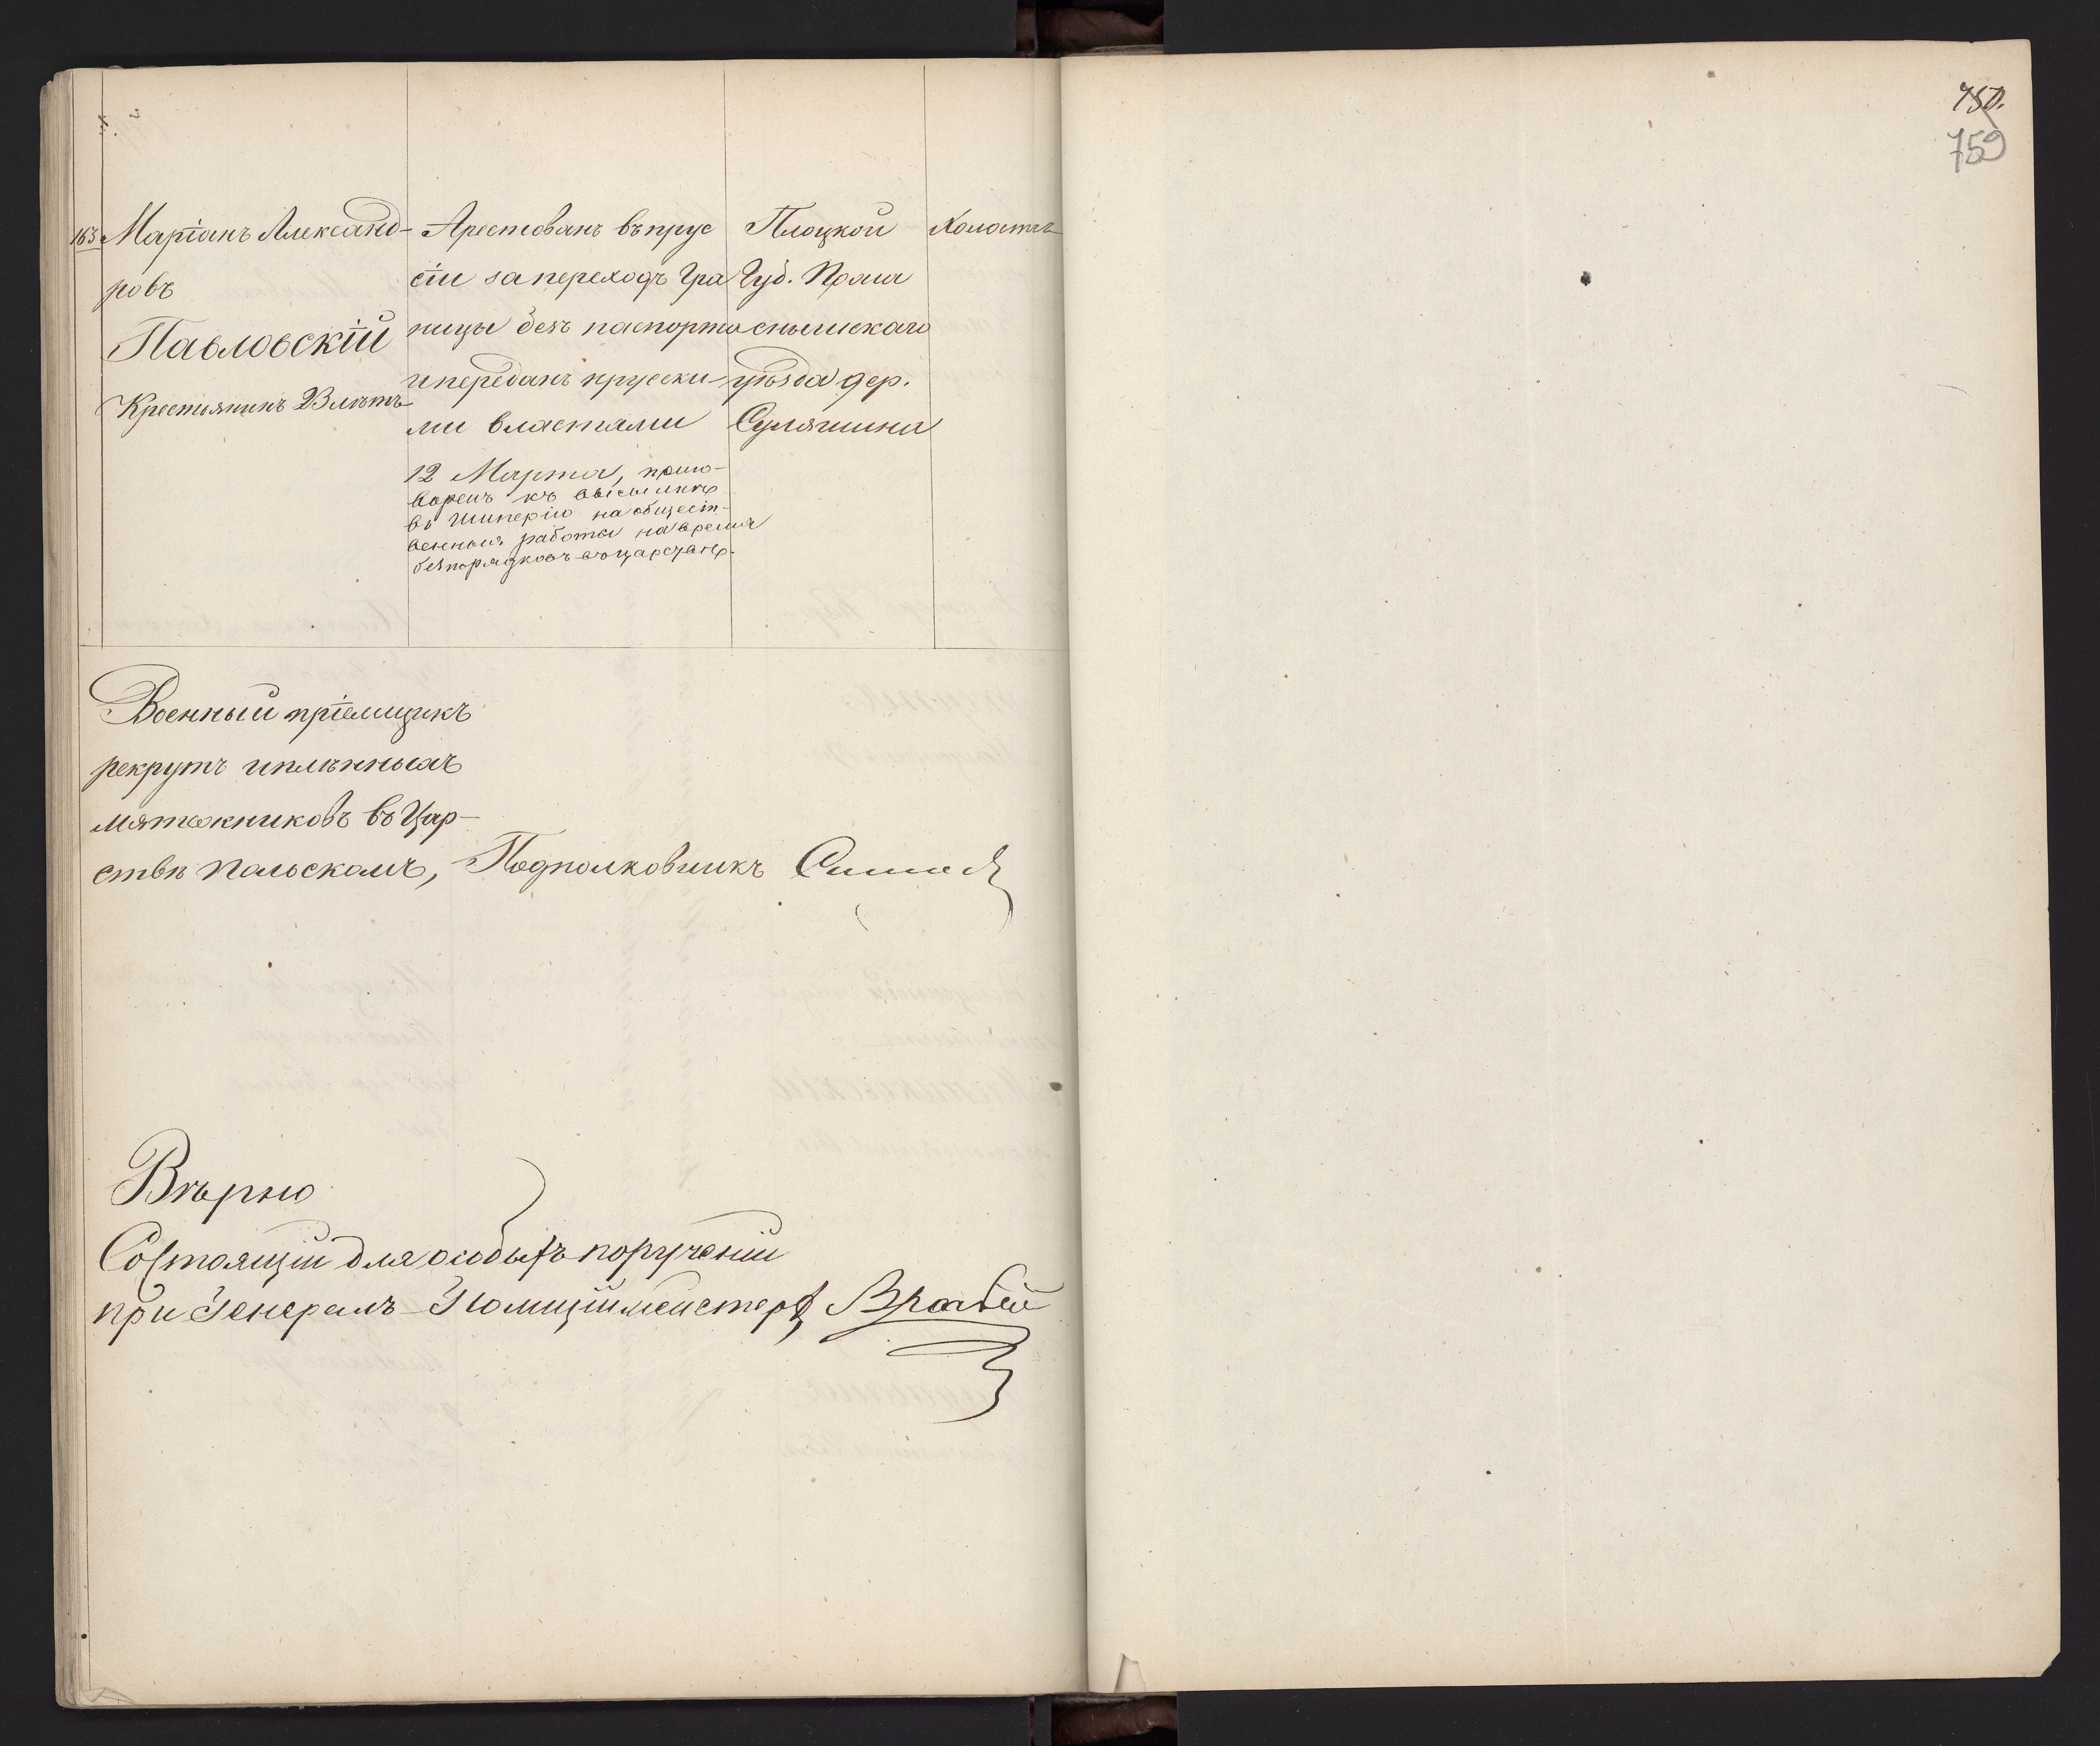 163
Маріанъ Александ-
ровъ
Павловскій
Крестьянинъ 23 лѣтъ
Арестованъ въ прус
сіи за переходъ гра
ницы безъ паспорта
и переданъ прусски-
ми властями
12 Марта, приго-
воренъ къ высылкѣ
въ Имперію на общест-
венныя работы на время
безпорядковъ въ царствѣ.
Плоцкой
Губ. Праш
снышскаго
уѣзда дер.
Холостъ
Военный пріемщикъ
рекрутъ и плѣнныхъ
мятежниковъ въ Цар-
ствѣ Польскомъ, Подполковникъ
Вѣрно
Состоящій для особыхъ порученій
при Генералъ-Полиціймейстерѣ
750.
759